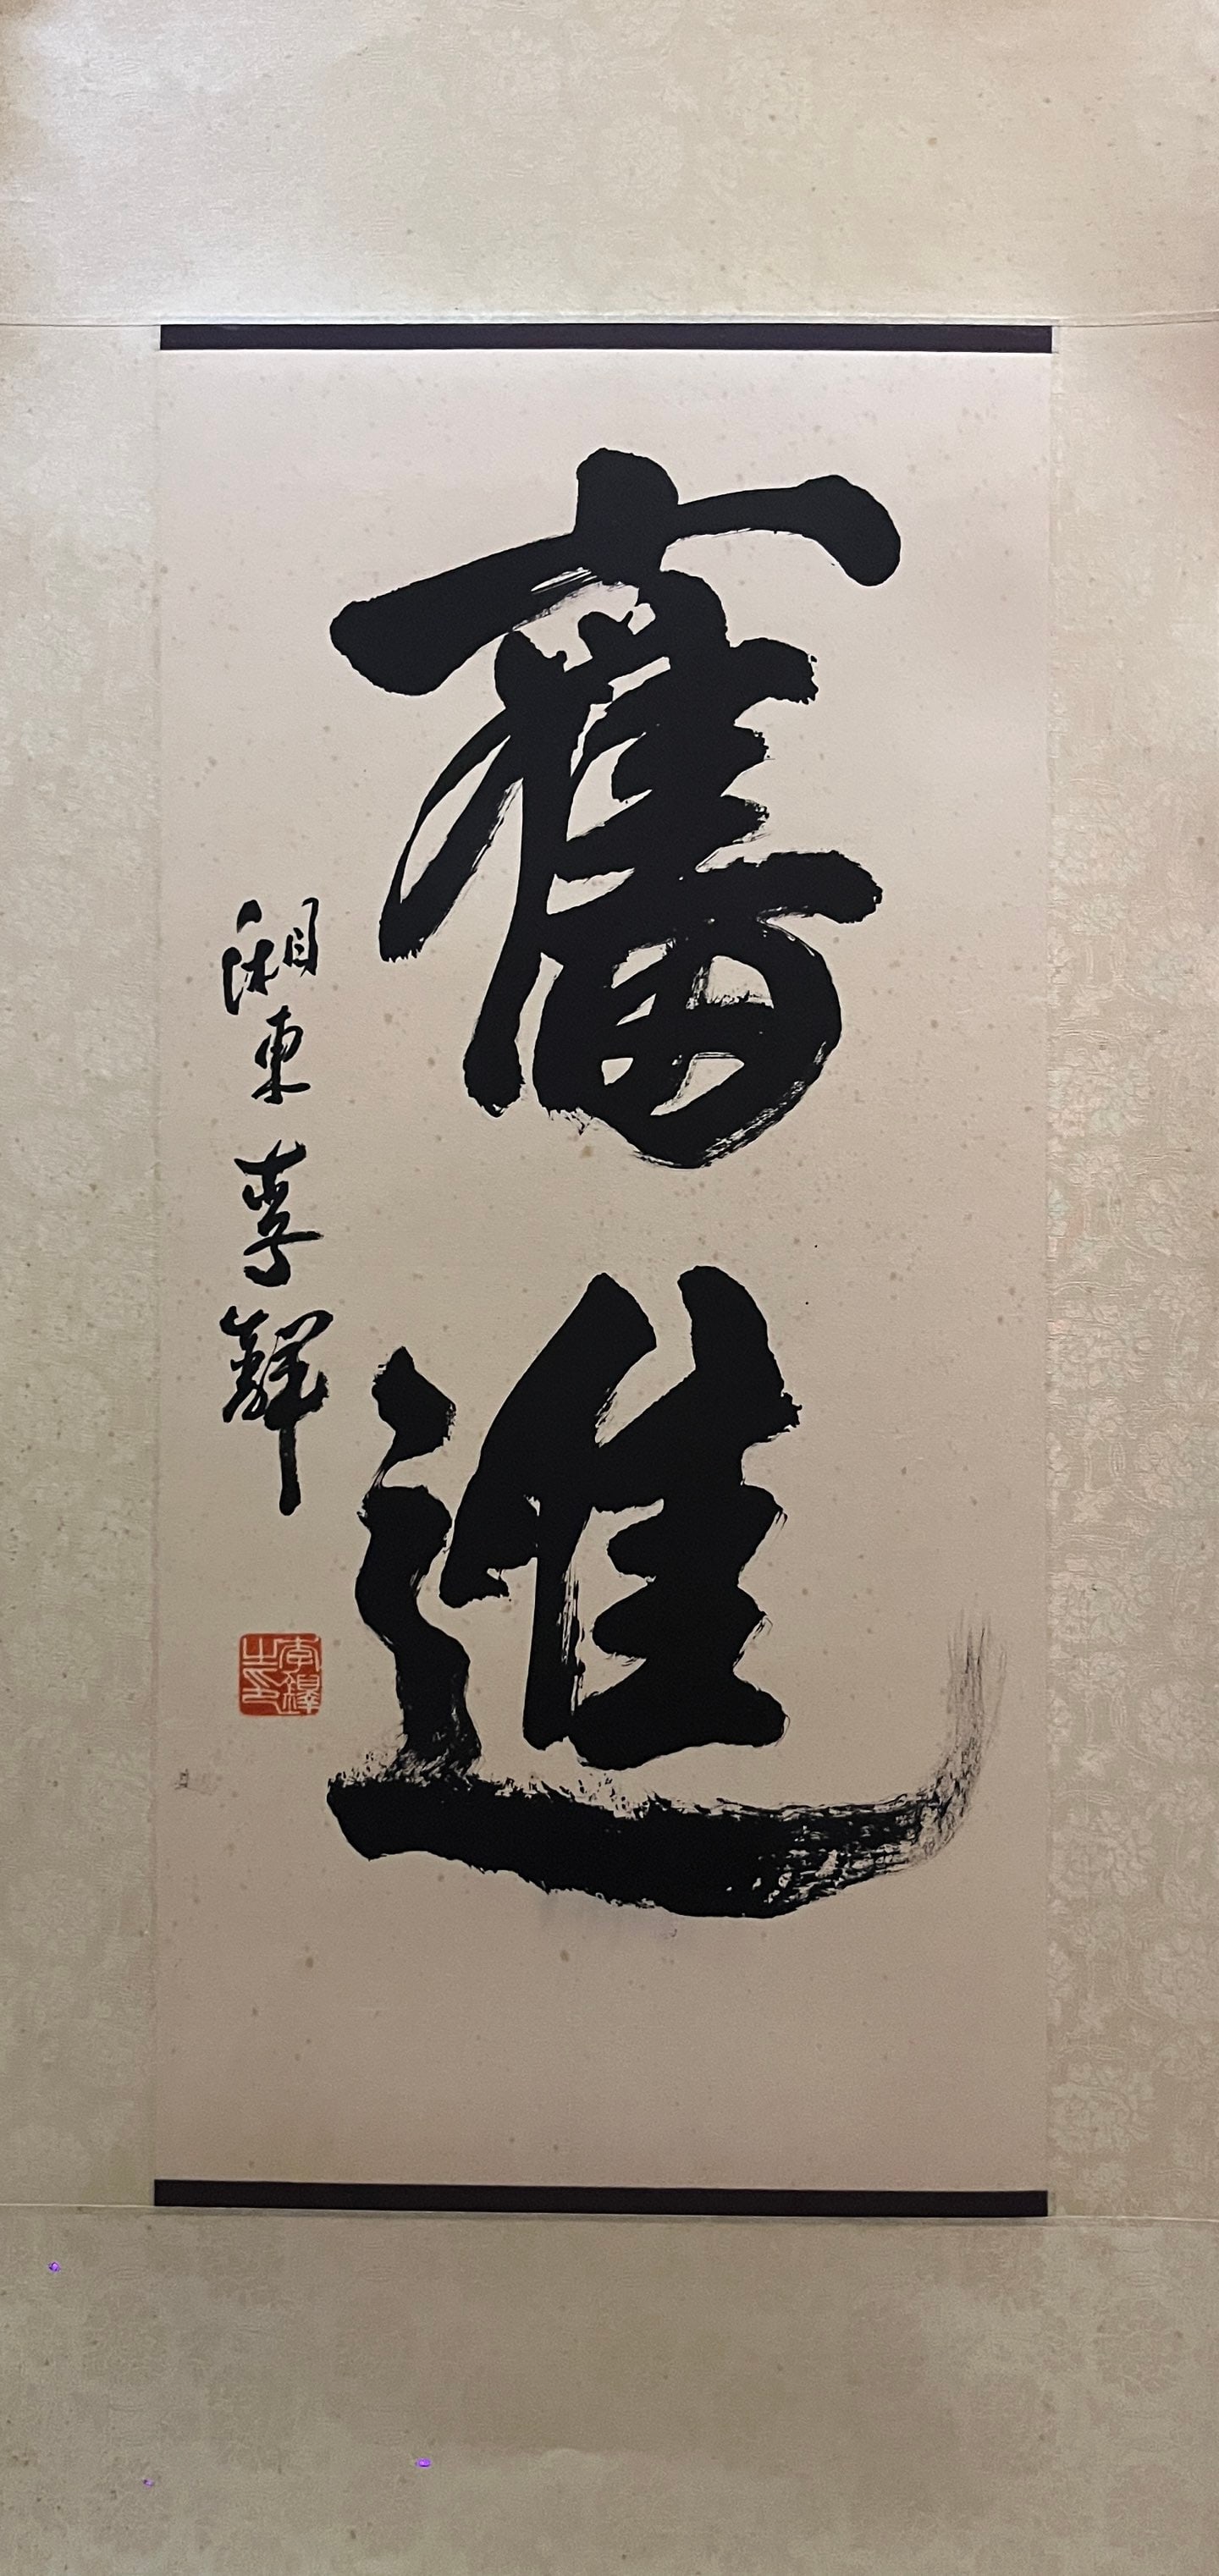 奮進
湘東李鐸
李鐸之印